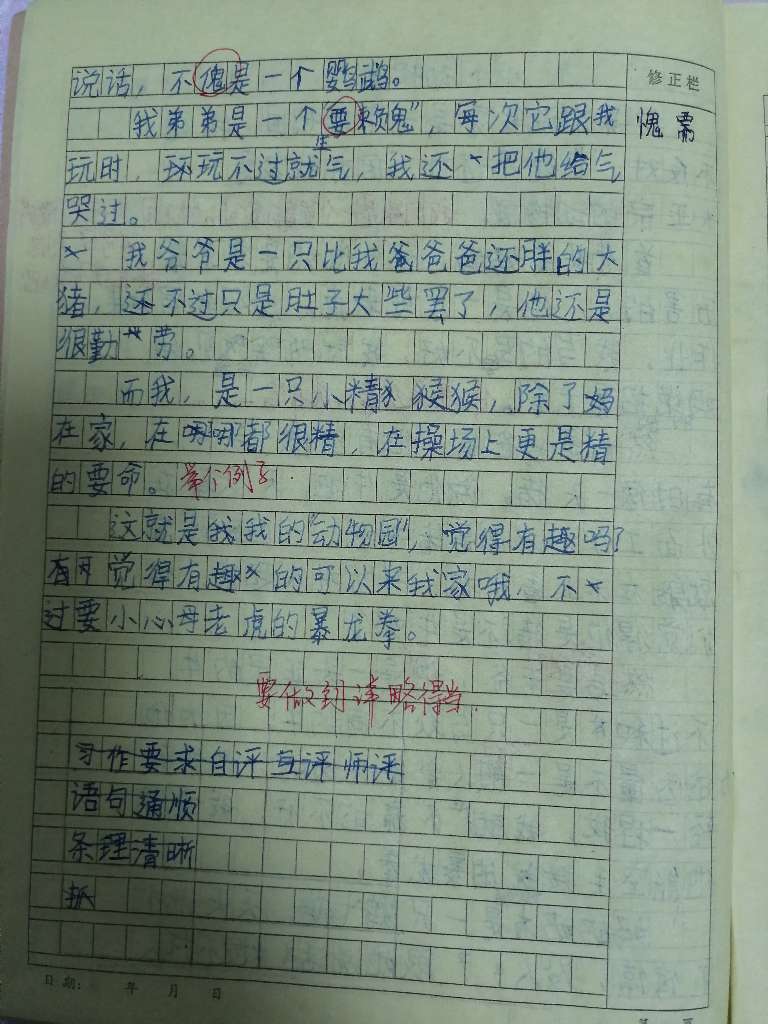 说话，不傀是一个鹦鹉。
修正栏
我弟弟是一个"要赖鬼"，每次它跟我
愧 需
玩时，环玩不过就生气，我还把他给气
哭过。
我爷爷是一只比我爸爸爸还胖的大
猪，还不过只是肚子大些罢了，他还是
很勤劳。
而我，是一只小精猴猴，除了妈
在家，在哪哪都很精，在操场上更是精
的要命。举个例子
这就是我我的"动物园"，觉得有趣吗？
觉得有趣的可以来我家哦 不
过要小心母老虎的暴龙拳。
要做到详略得当.
习作要求自评互评师评
语句通顺
条理清晰
日期： 年 月 日